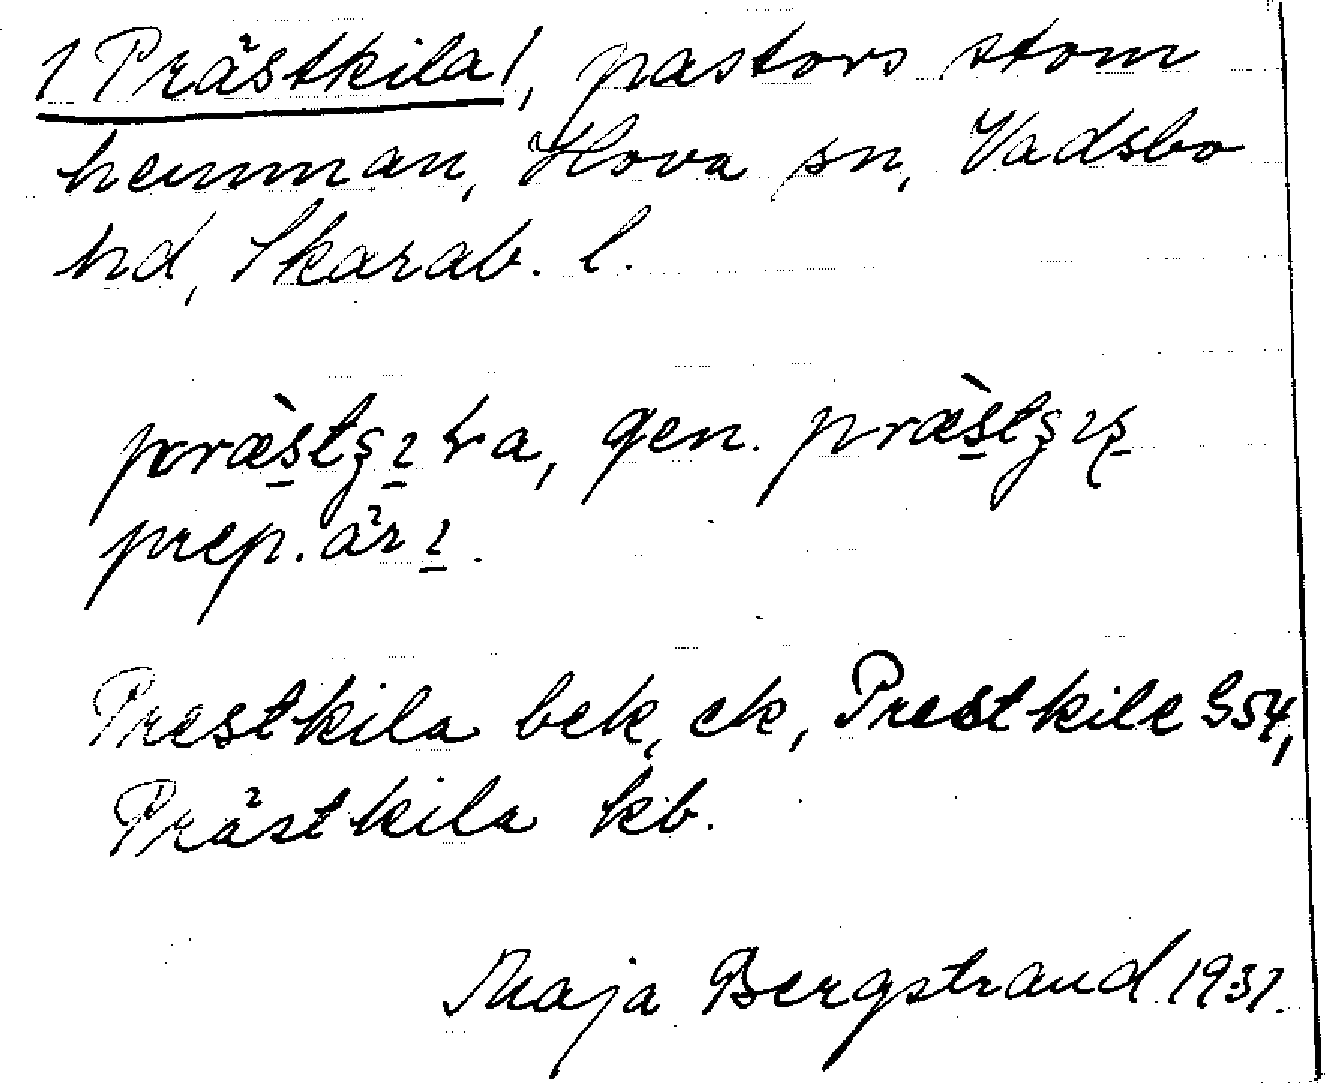 1 Prästkila 1, pastors stom
hemman, Hova sn, Vadsbo
hd, Skarab. l.
gen.
prep. är ı.
Prestkila bek, ek, Prestkile G54,
Prästkila kb.
Maja Bergstrand 1931.